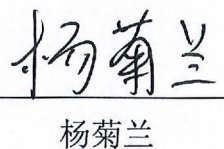 杨菊兰
杨菊兰